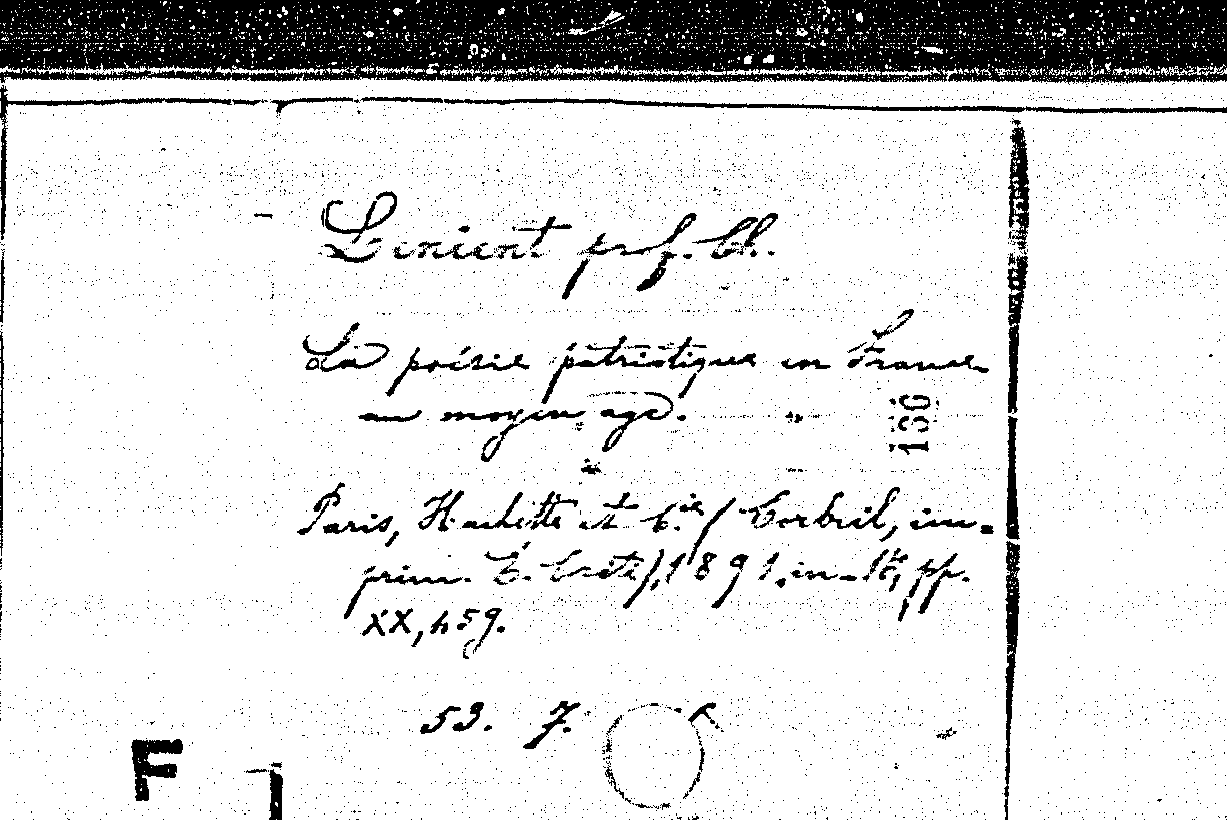 Lenient prof. Ch.
La poésie patriotique en France
au moyen age.
136
Paris, Hachette et C.ie (Corbeil, im=
prim. É. Crété), 1891, in-16, pp.
XX, 459.
53. 7.
F